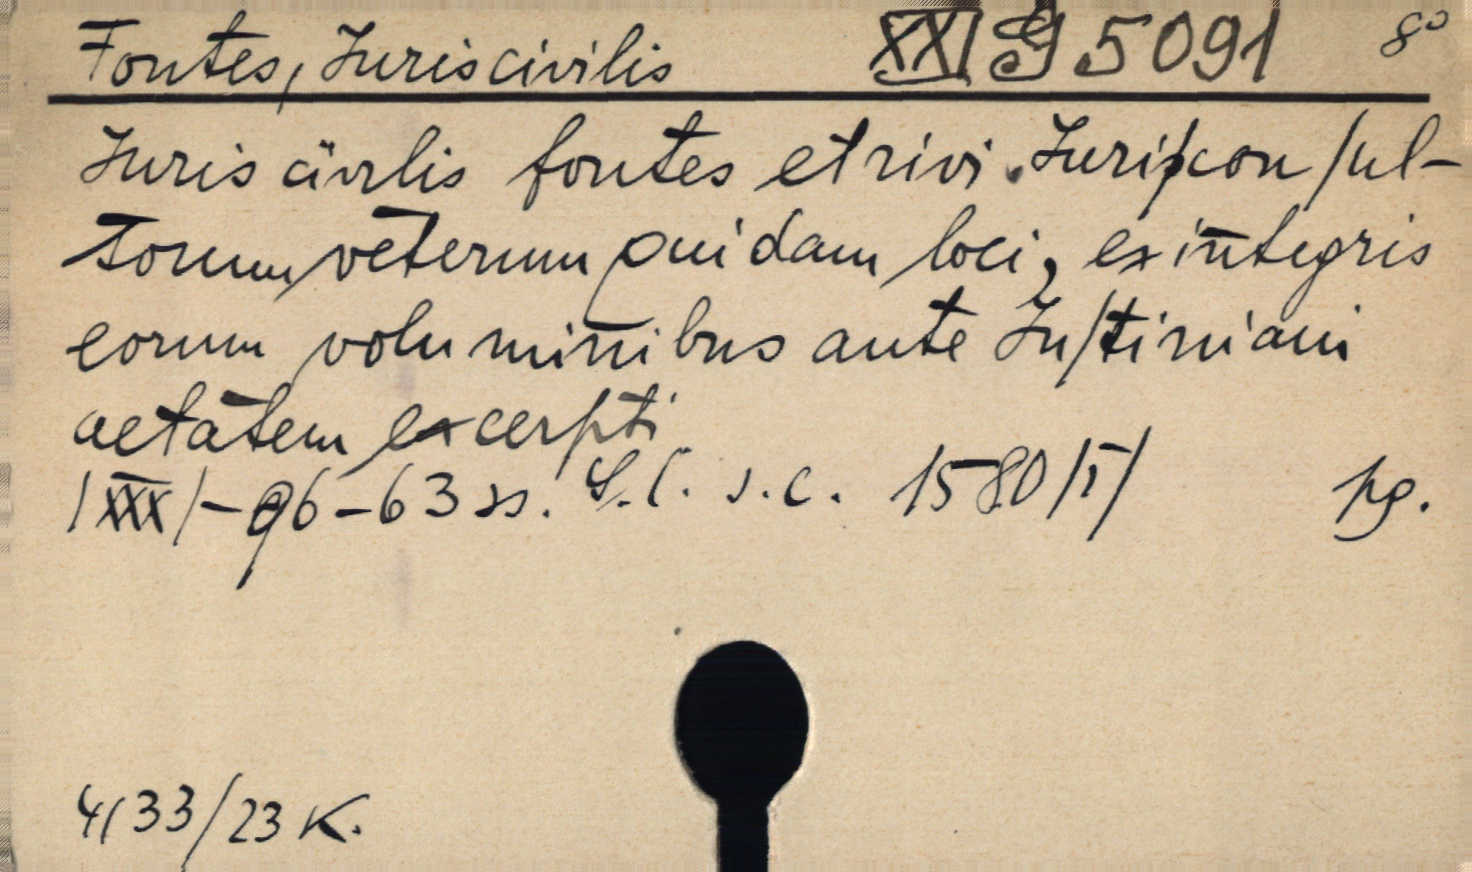 Fontes, Iuris civilis XXI J 5091 8°
Iuris civilis fontes et rivi. Iuriſcon ſul-
torum veterum quidam loci, ex integris
eorum voluminibus ante Iuſtiniani
aetatem excerpti
/XXX/-96-63 ss. S.l. s.c. 1580/I/ pg.
4133/23 K.